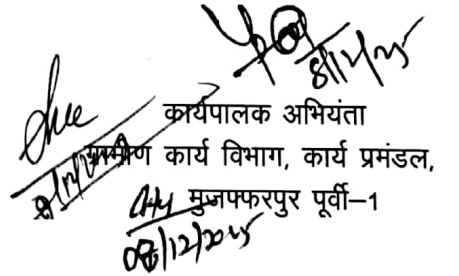 8/12/25
कार्यपालक अभियंता
ग्रामीण कार्य विभाग, कार्य प्रमंडल,
मुजफ्फरपुर पूर्वी–1
08/12/2025